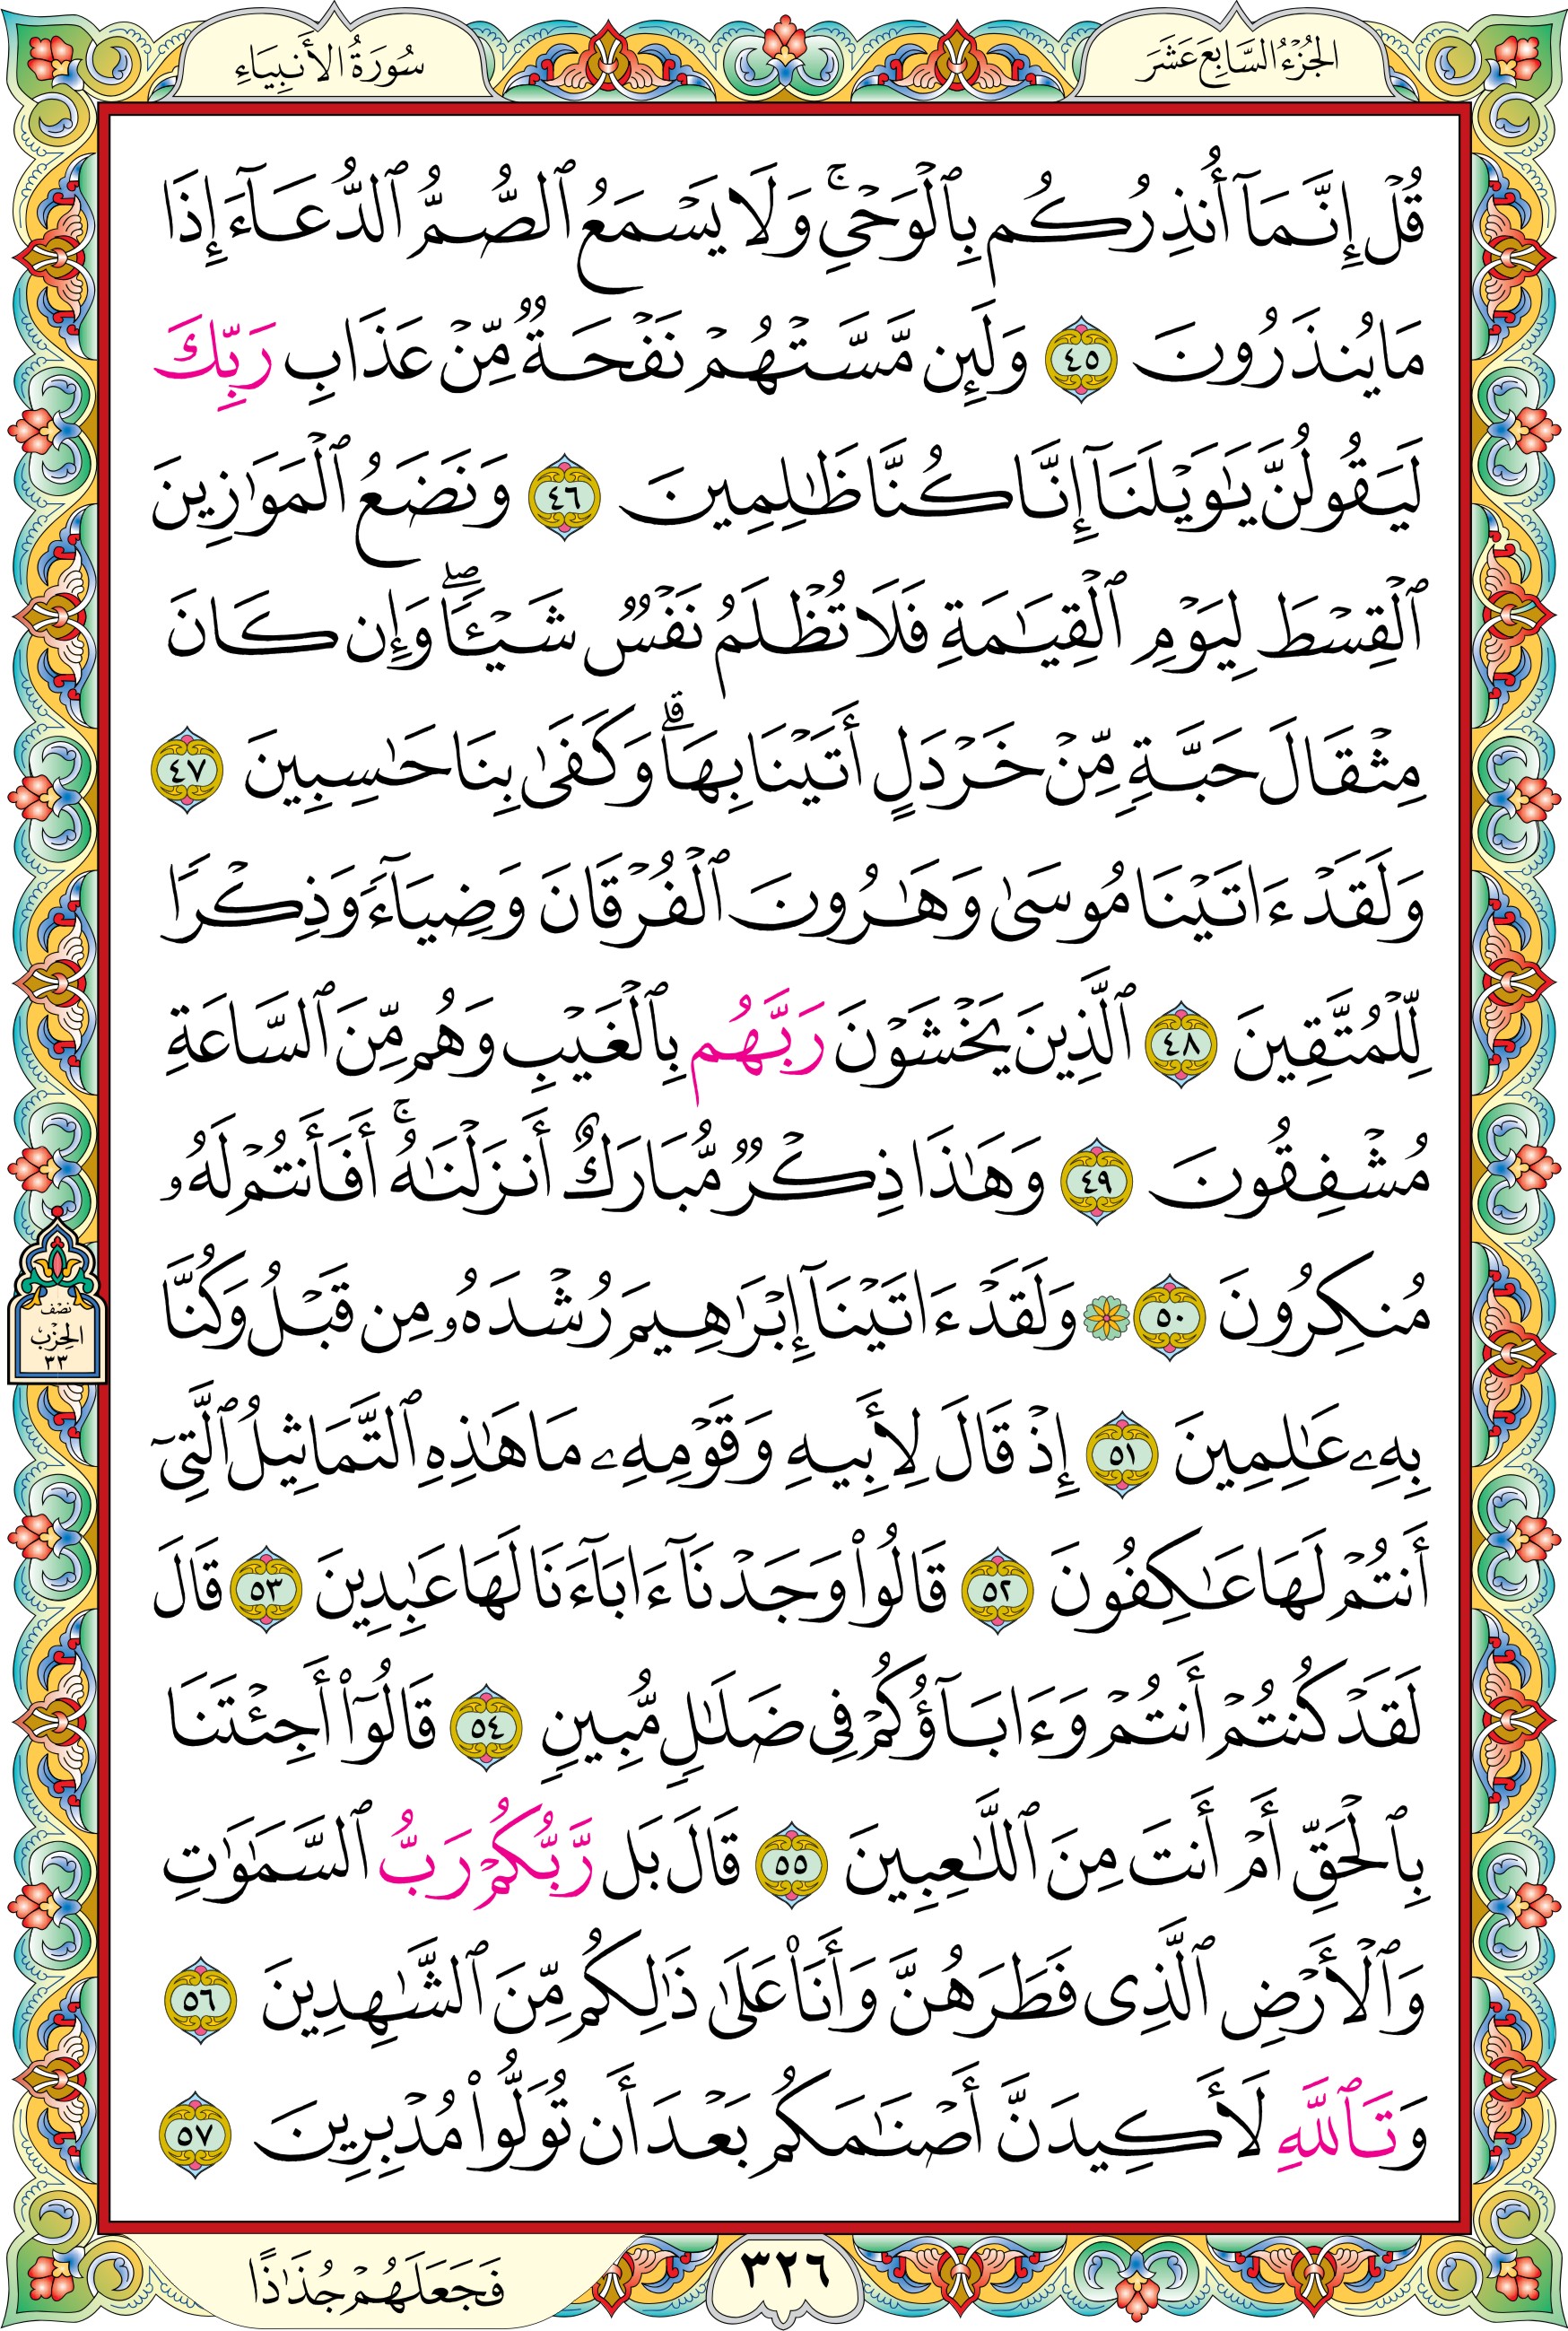 الجُزْءُ السَّابِعَ عَشَرَ
سُورَةُ الأَنبِيَاءِ
قُلْ إِنَّمَآ أُنذِرُكُم بِٱلْوَحْىِ ۚ وَلَا يَسْمَعُ ٱلصُّمُّ ٱلدُّعَآءَ إِذَا
مَا يُنذَرُونَ ٤٥ وَلَئِن مَّسَّتْهُمْ نَفْحَةٌ مِّنْ عَذَابِ رَبِّكَ
لَيَقُولُنَّ يَٰوَيْلَنَآ إِنَّا كُنَّا ظَٰلِمِينَ ٤٦ وَنَضَعُ ٱلْمَوَٰزِينَ
ٱلْقِسْطَ لِيَوْمِ ٱلْقِيَٰمَةِ فَلَا تُظْلَمُ نَفْسٌ شَيْـًٔا ۖ وَإِن كَانَ
مِثْقَالَ حَبَّةٍ مِّنْ خَرْدَلٍ أَتَيْنَا بِهَا ۗ وَكَفَىٰ بِنَا حَٰسِبِينَ ٤٧
وَلَقَدْ ءَاتَيْنَا مُوسَىٰ وَهَٰرُونَ ٱلْفُرْقَانَ وَضِيَآءً وَذِكْرًا
لِّلْمُتَّقِينَ ٤٨ ٱلَّذِينَ يَخْشَوْنَ رَبَّهُم بِٱلْغَيْبِ وَهُم مِّنَ ٱلسَّاعَةِ
مُشْفِقُونَ ٤٩ وَهَٰذَا ذِكْرٌ مُّبَارَكٌ أَنزَلْنَٰهُ ۚ أَفَأَنتُمْ لَهُۥ
مُنكِرُونَ ٥٠ ۞ وَلَقَدْ ءَاتَيْنَآ إِبْرَٰهِيمَ رُشْدَهُۥ مِن قَبْلُ وَكُنَّا
بِهِۦ عَٰلِمِينَ ٥١ إِذْ قَالَ لِأَبِيهِ وَقَوْمِهِۦ مَا هَٰذِهِ ٱلتَّمَاثِيلُ ٱلَّتِىٓ
أَنتُمْ لَهَا عَٰكِفُونَ ٥٢ قَالُوا۟ وَجَدْنَآ ءَابَآءَنَا لَهَا عَٰبِدِينَ ٥٣ قَالَ
لَقَدْ كُنتُمْ أَنتُمْ وَءَابَآؤُكُمْ فِى ضَلَٰلٍ مُّبِينٍ ٥٤ قَالُوٓا۟ أَجِئْتَنَا
بِٱلْحَقِّ أَمْ أَنتَ مِنَ ٱللَّٰعِبِينَ ٥٥ قَالَ بَل رَّبُّكُمْ رَبُّ ٱلسَّمَٰوَٰتِ
وَٱلْأَرْضِ ٱلَّذِى فَطَرَهُنَّ وَأَنَا۠ عَلَىٰ ذَٰلِكُم مِّنَ ٱلشَّٰهِدِينَ ٥٦
وَتَٱللَّهِ لَأَكِيدَنَّ أَصْنَٰمَكُم بَعْدَ أَن تُوَلُّوا۟ مُدْبِرِينَ ٥٧
نِصْف
الحِزْب
٣٣
٣٢٦
فَجَعَلَهُمْ جُذَٰذًا